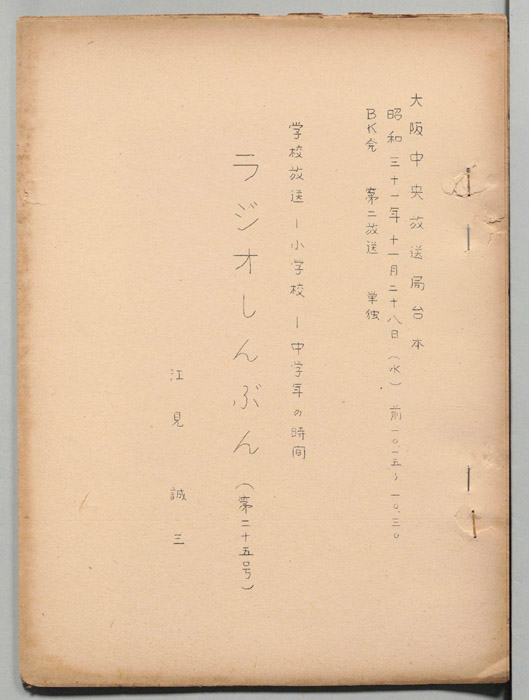 大阪中央放送局台本
昭和三十一年十一月二十八日（水）前一〇.一五～一〇.三〇
BK発 第二放送 単独
学校放送－小学校－中学年の時間
ラジオしんぶん（第二十五号）
江見誠三